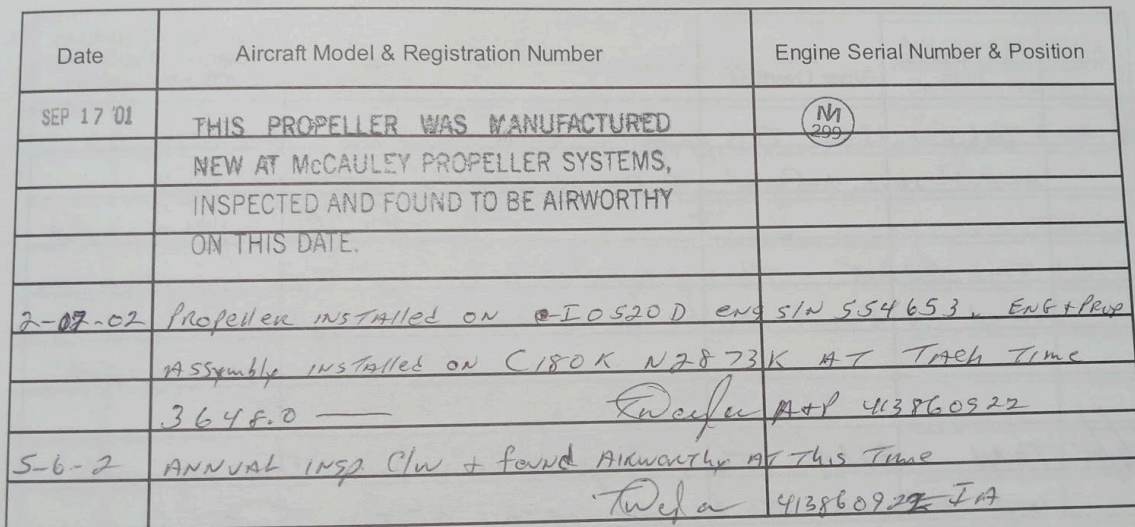 Date Aircraft Model & Registration Number Engine Serial Number & Position
SEP 17 '01 THIS PROPELLER WAS MANUFACTURED M 299
NEW AT McCAULEY PROPELLER SYSTEMS,
INSPECTED AND FOUND TO BE AIRWORTHY
ON THIS DATE.
2-07-02 Propeller INSTAlled ON IO520D eng S/N 554653. ENG + Prop
ASSymbly INSTAlled ON C180K N2873K AT TAch Time
3648.0 A+P 413860922
5-6-2 ANNUAL INSP. C/W + found AIRWORThy AT This Time
413860922 IA